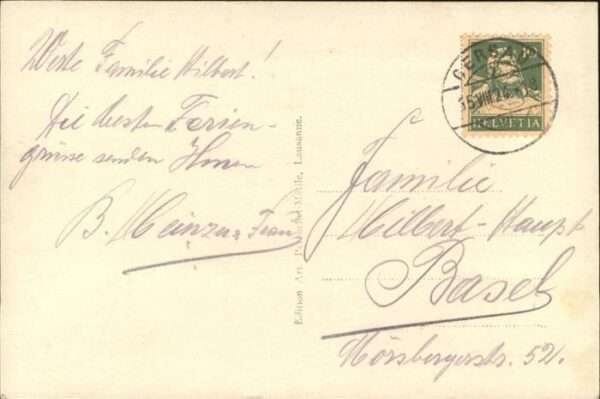 Werte Familie Hilbert!
Die besten Ferien-
grüsse senden Ihnen
B. Heinzu. Frau
Edition Art. Perrochet-Matile, Lausanne.
GERSAU
15.VIII.26.-18
HELVETIA
Familie
Hilbert-Haupt
Basel
Mörsbergerstr. 52.